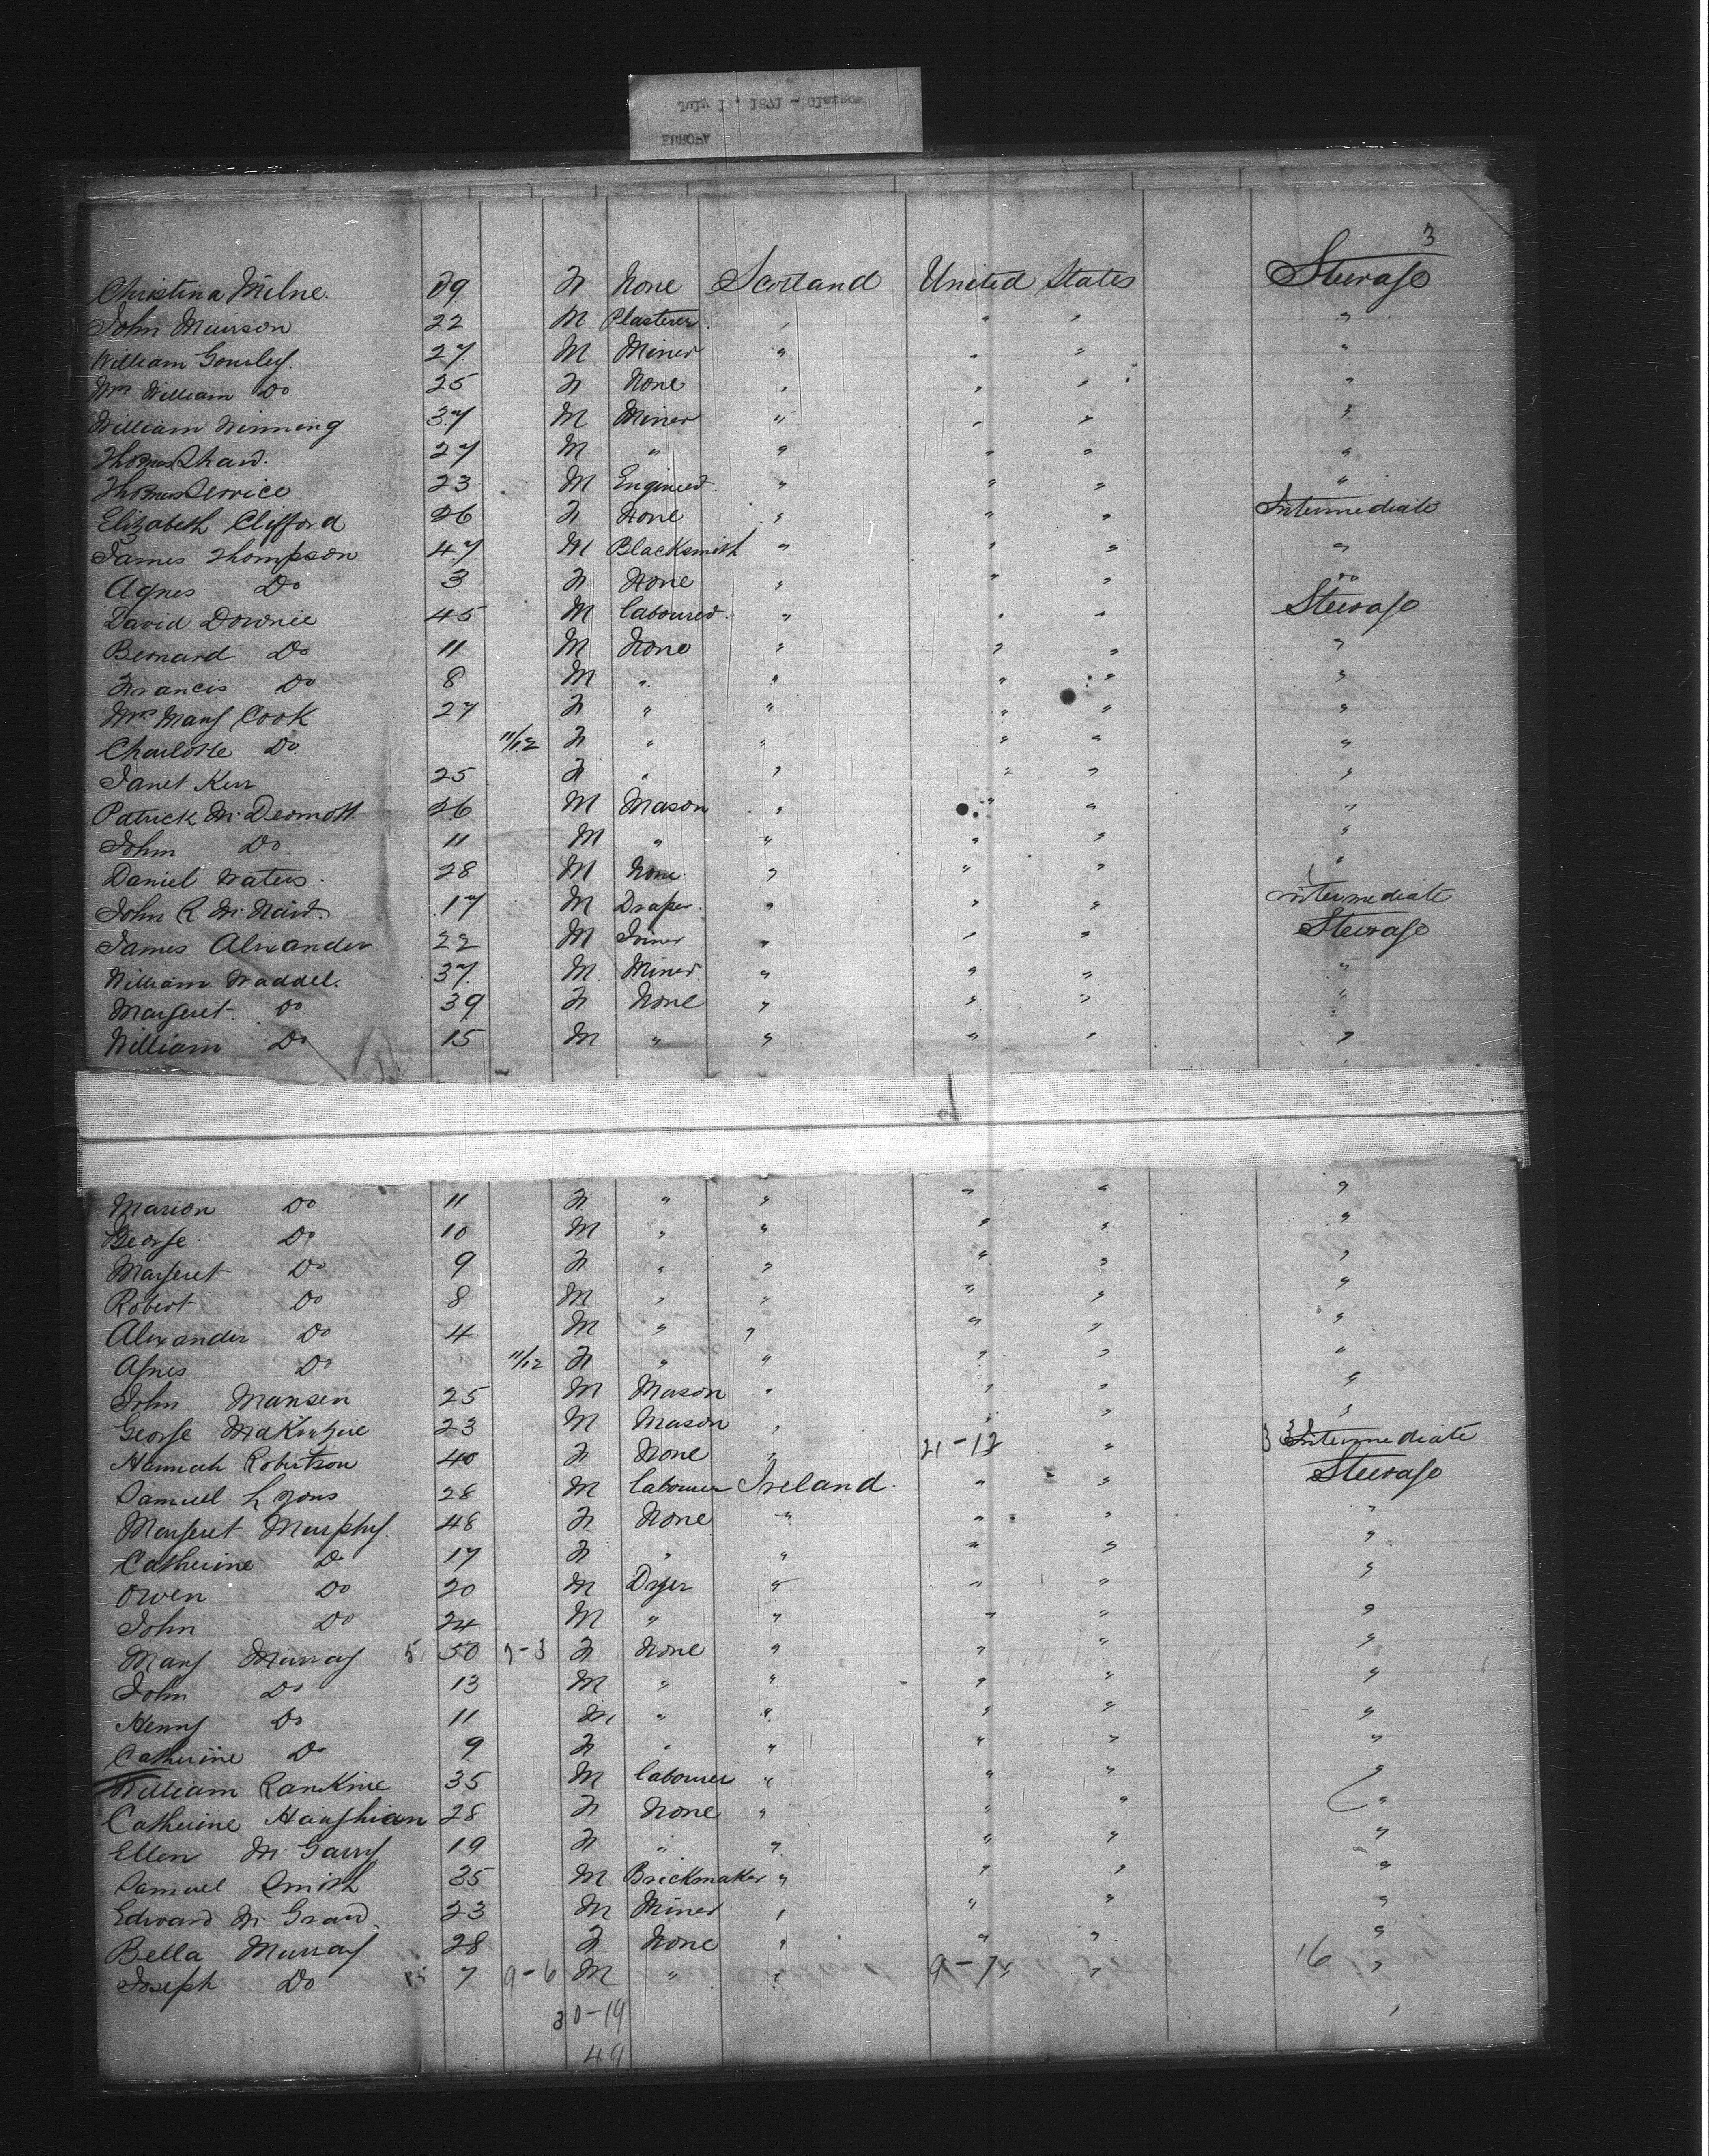 July 13, 1871 - Glasgow
EUROPA
3
Christina Milne. 29 F None Scotland United States Steerage
John Manson 22 M Plasterer " " " "
William Gourley. 27 M Miner " " " "
Mrs William Do 25 F None " " " "
William Winning 37 M Miner " " " "
Thomas Shaw. 27 M " " " " "
Thomas Service 23 M Engineer " " " "
Elizabeth Clifford 26 F None " " " Intermediate
James Thompson 47 M Blacksmith " " " "
Agnes Do 3 F None " " " Do
David Downie 45 M Labourer " " " Steerage
Bernard Do 11 M None " " " "
Francis Do 8 M " " " " "
Mrs Mary Cook 27 F " " " " "
Charlotte Do 11/12 F " " " " "
Janet Kerr 25 F " " " " "
Patrick McDermott. 26 M Mason " " " "
John Do 11 M " " " " "
Daniel Waters. 28 M None " " " "
John R McNair. 17 M Draper. " " " Intermediate
James Alexander 22 M Joiner " " " Steerage
William Waddel. 37 M Miner " " " "
Margeret Do 39 F None " " " "
William Do 15 M " " " " "
Marion Do 11 F " " " " "
George Do 10 M " " " " "
Margeret Do 9 F " " " " "
Robert Do 8 M " " " " "
Alexander Do 4 M " " " " "
Agnes Do 11/12 F " " " " "
John Mansen 25 M Mason " " " "
George McKenzie 23 M Mason " " " "
Hannah Robertson 40 F None " 21-12 " 3 3 Intermediate
Samuel Lyons 28 M Labourer Ireland. " " Steerage
Margeret Murphy. 48 F None " " " "
Catherine Do 17 F " " " " "
Owen Do 20 M Dyer " " " "
John Do 24 M " " " " "
Mary Murray 5 50 7-3 F None " " " "
John Do 13 M " " " " "
Henry Do 11 M " " " " "
Catherine Do 9 F " " " " "
William Rankine 35 M Labourer " " " "
Catherine Haughian 28 F None " " " "
Ellen McGarry 19 F " " " " "
Samuel Smith 35 M Brickmaker " " " "
Edward McGraw. 23 M Miner " " " "
Bella Murray 28 F None " " " "
Joseph Do 15 7 9-6 M " " 9-7 " 16 "
30-19
49